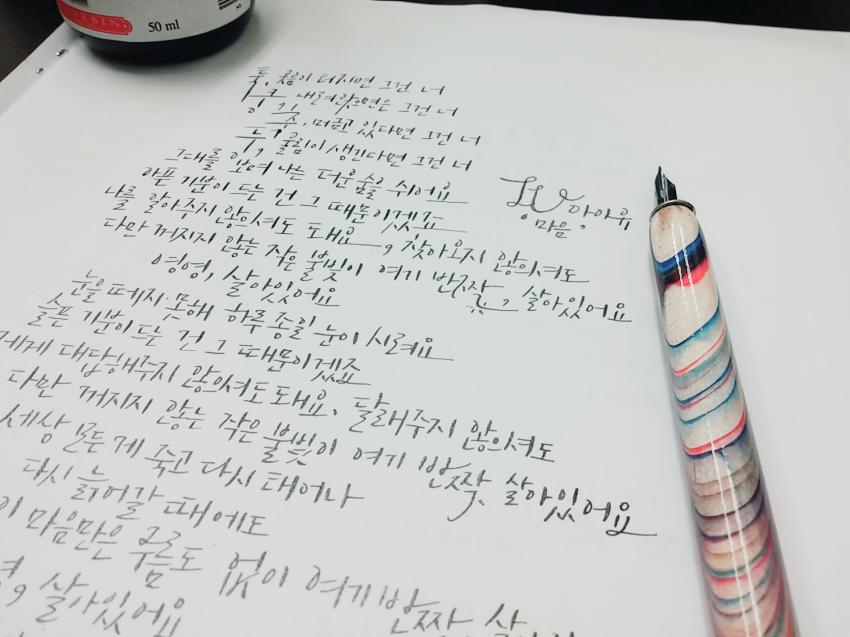 50 ml
툭, 구름이 터지면 그건 너
쿵, 내려앉으면은 그건 너
축, 머금고 있다면 그건 너
둑, 울림이 생긴다면 그건 너
그대를 보며 나는 더운 숨을 쉬어요
아픈 기분이 드는 건 그 때문이겠죠
나를 알아주지 않으셔도 돼요, 찾아오지 않으셔도
다만 꺼지지 않는 작은 불빛이 여기 반짝 살아있어요
영영, 살아있어요
아이유
'마음'
눈을 떼지 못해 하루종일 눈이 시려요
슬픈 기분이 드는 건 그 때문이겠죠
제게 대답해주지 않으셔도 돼요, 달래주지 않으셔도
다만 꺼지지 않는 작은 불빛이 여기 반짝 살아있어요
세상 모든 게 죽고 다시 태어나
다시 늙어갈 때에도
이 마음만은 주름도 없이 여기 반짝 살
영, 살아있어요